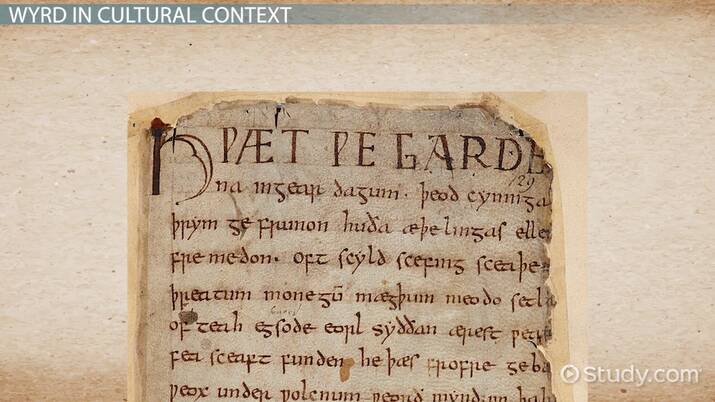 WYRD IN CULTURAL CONTEXT
HǷÆT ǷE GARDE
129
na ingear dagum. þeod cyninga
þrym ge frunon huða æþelingas ellen
fremedon. oft scyld scefing sceaþe
þreatum monegū mægþum meodo setla
of teah egsode eorl syððan ærest ƿear
fea sceaft funden he þæs frofre geba
ƿeox under ƿolcnum ƿeorð myndum
Study.com